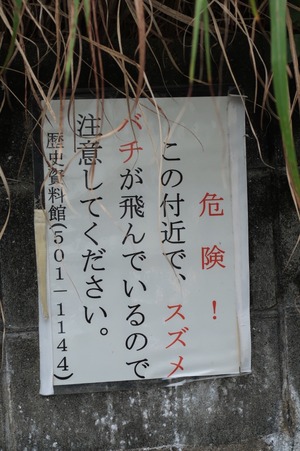 危険！
この付近で、スズメ
バチが飛んでいるので
注意してください。
歴史資料館(501-1144)